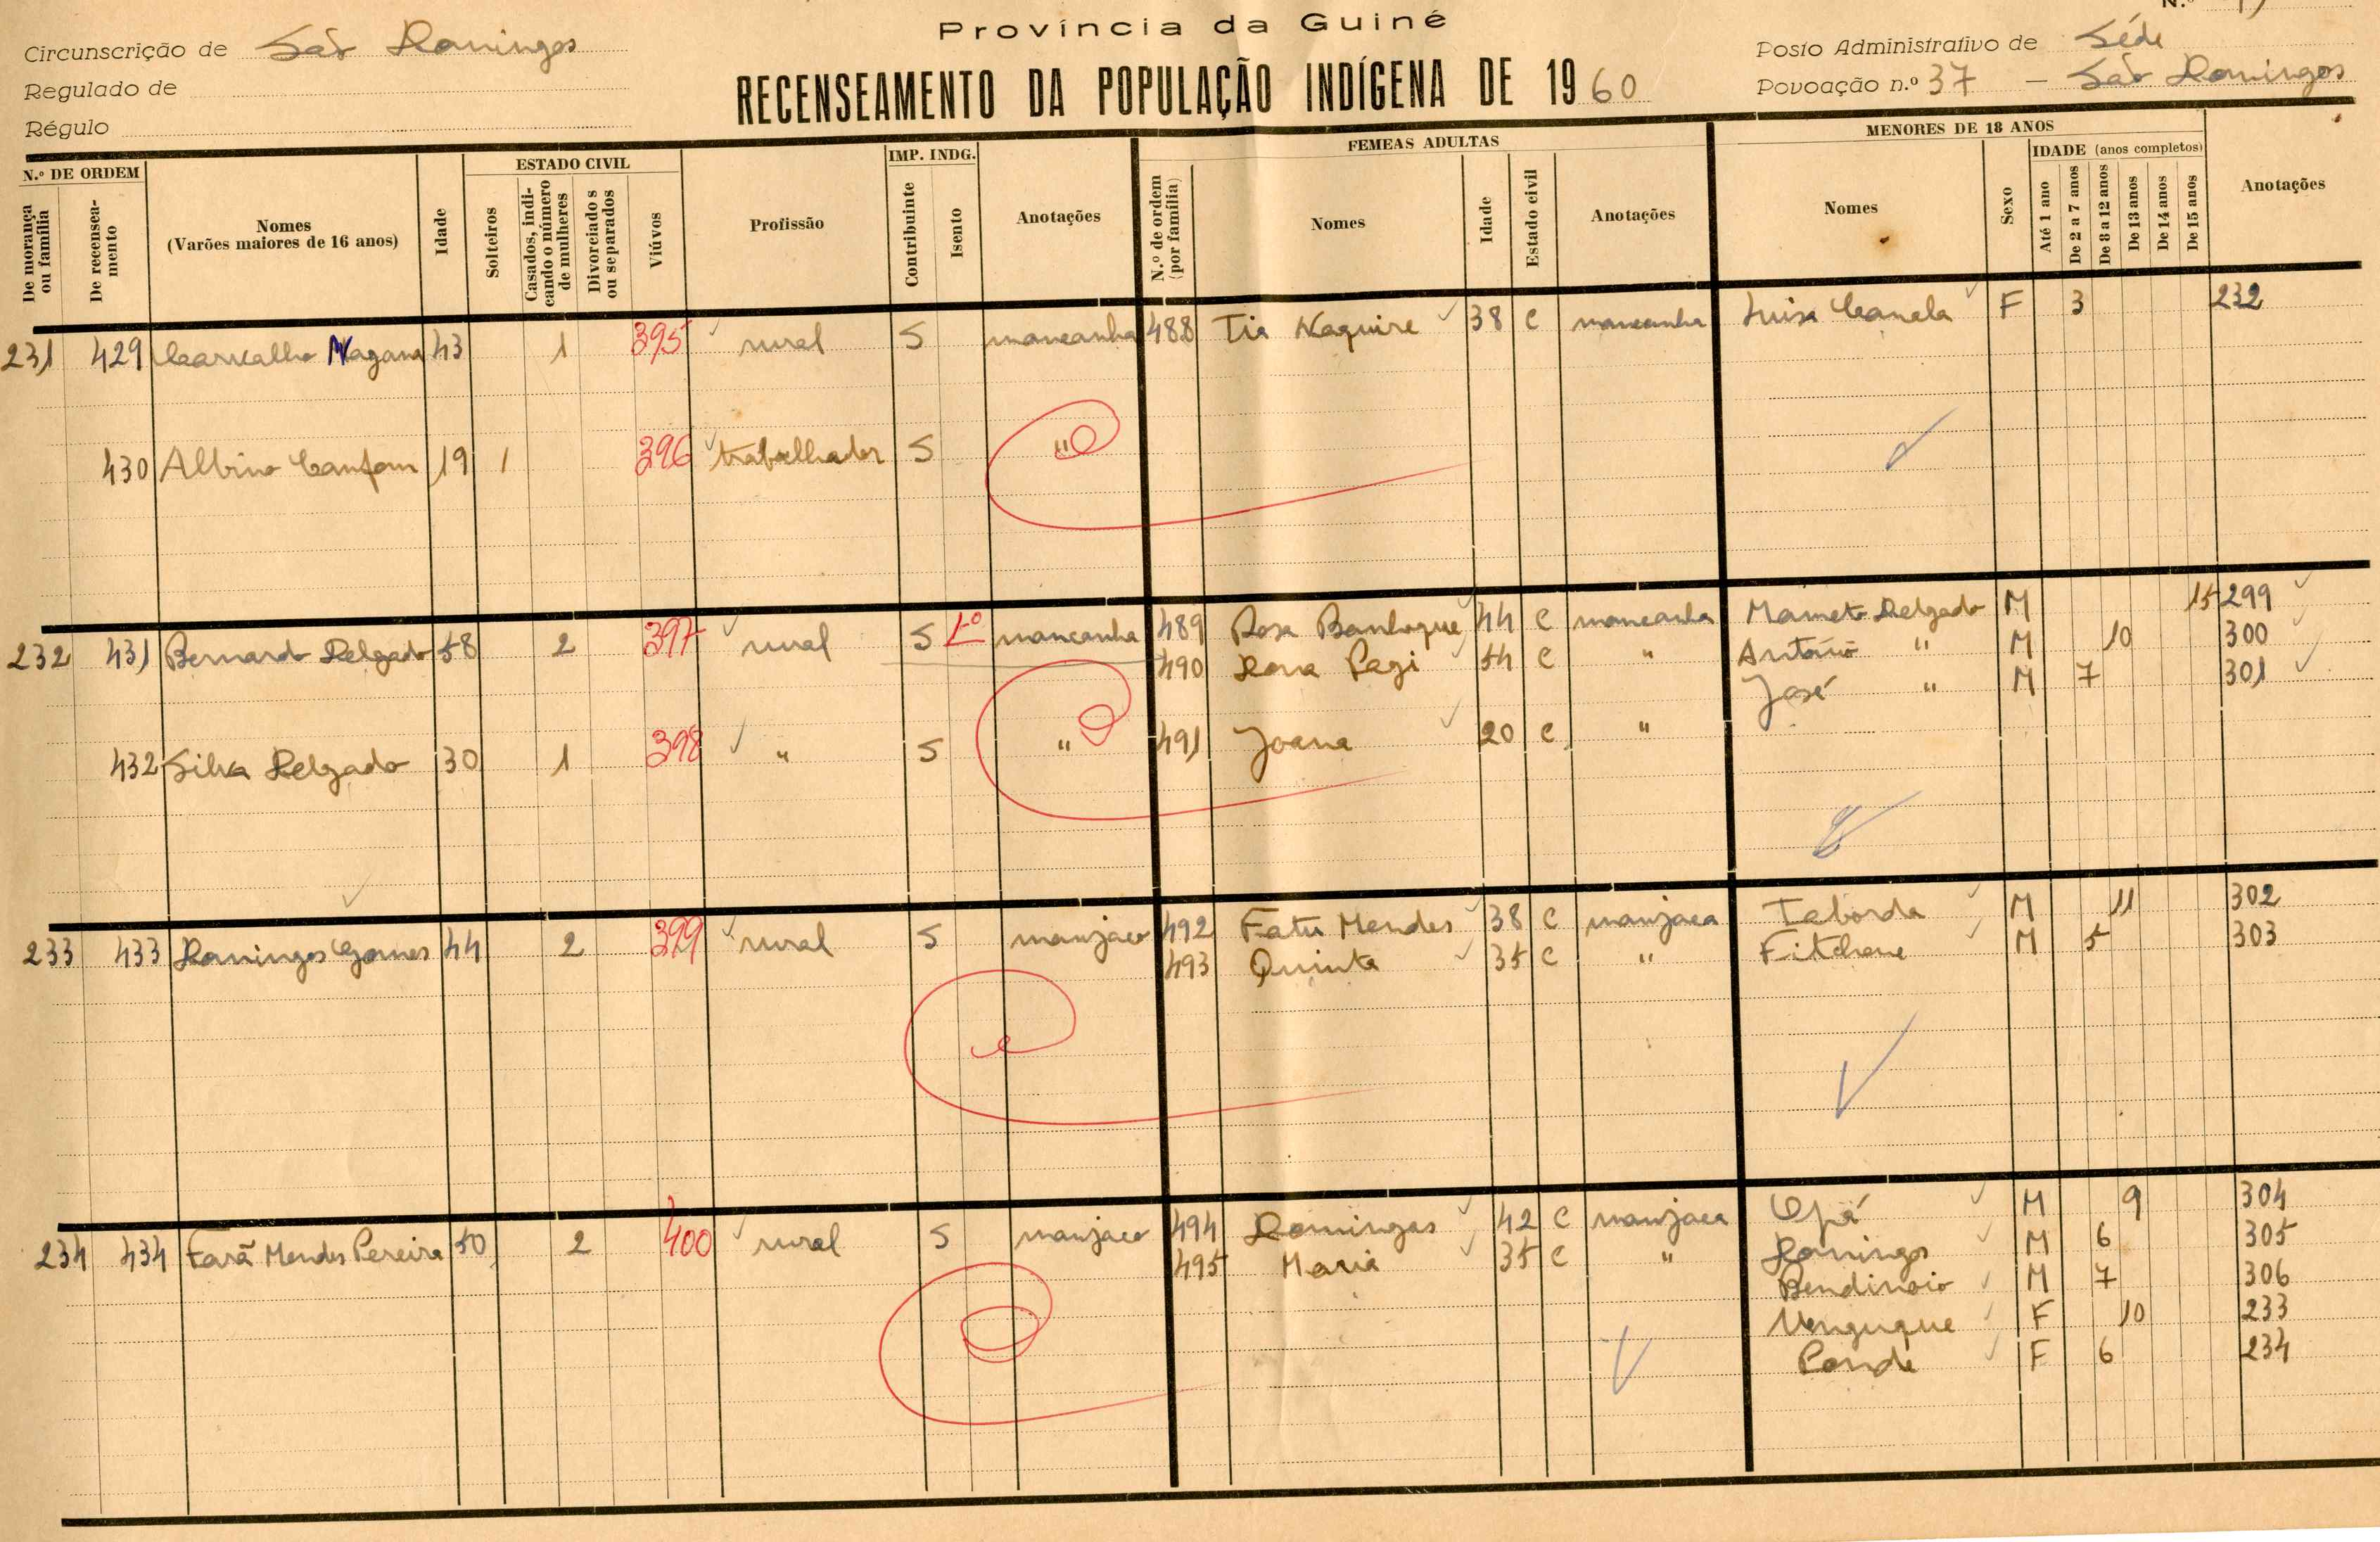 Província da Guiné
Circunscrição de São Domingos
Regulado de
Régulo
RECENSEAMENTO DA POPULAÇÃO INDÍGENA DE 1960
N.º
Posto Administrativo de Séde
Povoação n.º 37 – São Domingos
N.º DE ORDEM
De morança ou família
De recenseamento
Nomes
(Varões maiores de 16 anos)
Idade
ESTADO CIVIL
Solteiros
Casados, indicando o número de mulheres
Divorciados ou separados
Viúvos
Profissão
IMP. INDG.
Contribuinte
Isento
Anotações
FEMEAS ADULTAS
N.º de ordem (por família)
Nomes
Idade
Estado civil
Anotações
MENORES DE 18 ANOS
Nomes
Sexo
IDADE (anos completos)
Até 1 ano
De 2 a 7 anos
De 8 a 12 anos
De 13 anos
De 14 anos
De 15 anos
Anotações
231 429 Carvalho Nagana 43 1 395 rural S mancanha 488 Tia Naquire 38 C mancanha Luisa Canela F 3 232
430 Albino Canfom 19 1 396 trabalhador S "
232 431 Bernardo Delgado 58 2 397 rural S mancanha 489 Rosa Banhoque 44 C mancanha Mameto Delgado M 15 299
490 Dona Pagi 54 C " António " M 10 300
José " M 7 301
432 Silva Delgado 30 1 398 " S " 491 Joana 20 C "
233 433 Domingos Gomes 44 2 399 rural S manjaco 492 Fatu Mendes 38 C manjaca Taborda M 11 302
493 Quinta 35 C " Fitchene M 5 303
234 434 Farã Mendes Pereira 50 2 400 rural S manjaco 494 Domingas 42 C manjaca Opá M 9 304
495 Maria 35 C " Domingos M 6 305
Bendinoio M 7 306
Unguque F 10 233
Pande F 6 234